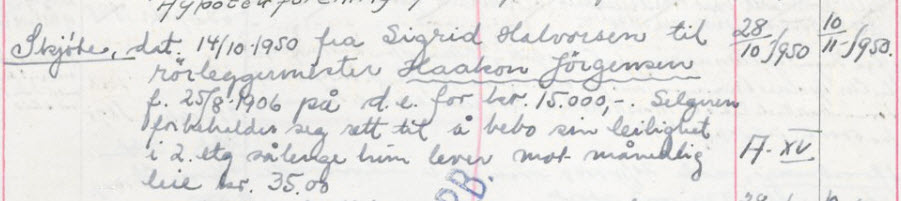 Skjøte, dat. 14/10-1950 fra Sigrid Halvorsen til 28/10-1950 10/11-1950.
rörleggermester Haakon Jörgensen
f. 25/8-1906 på d.e. for kr. 15.000,-. Selgeren
forbeholder seg rett til å bebo sin leilighet
i 2. etg sålenge hun lever mot månedlig A-XV
leie kr. 35.00